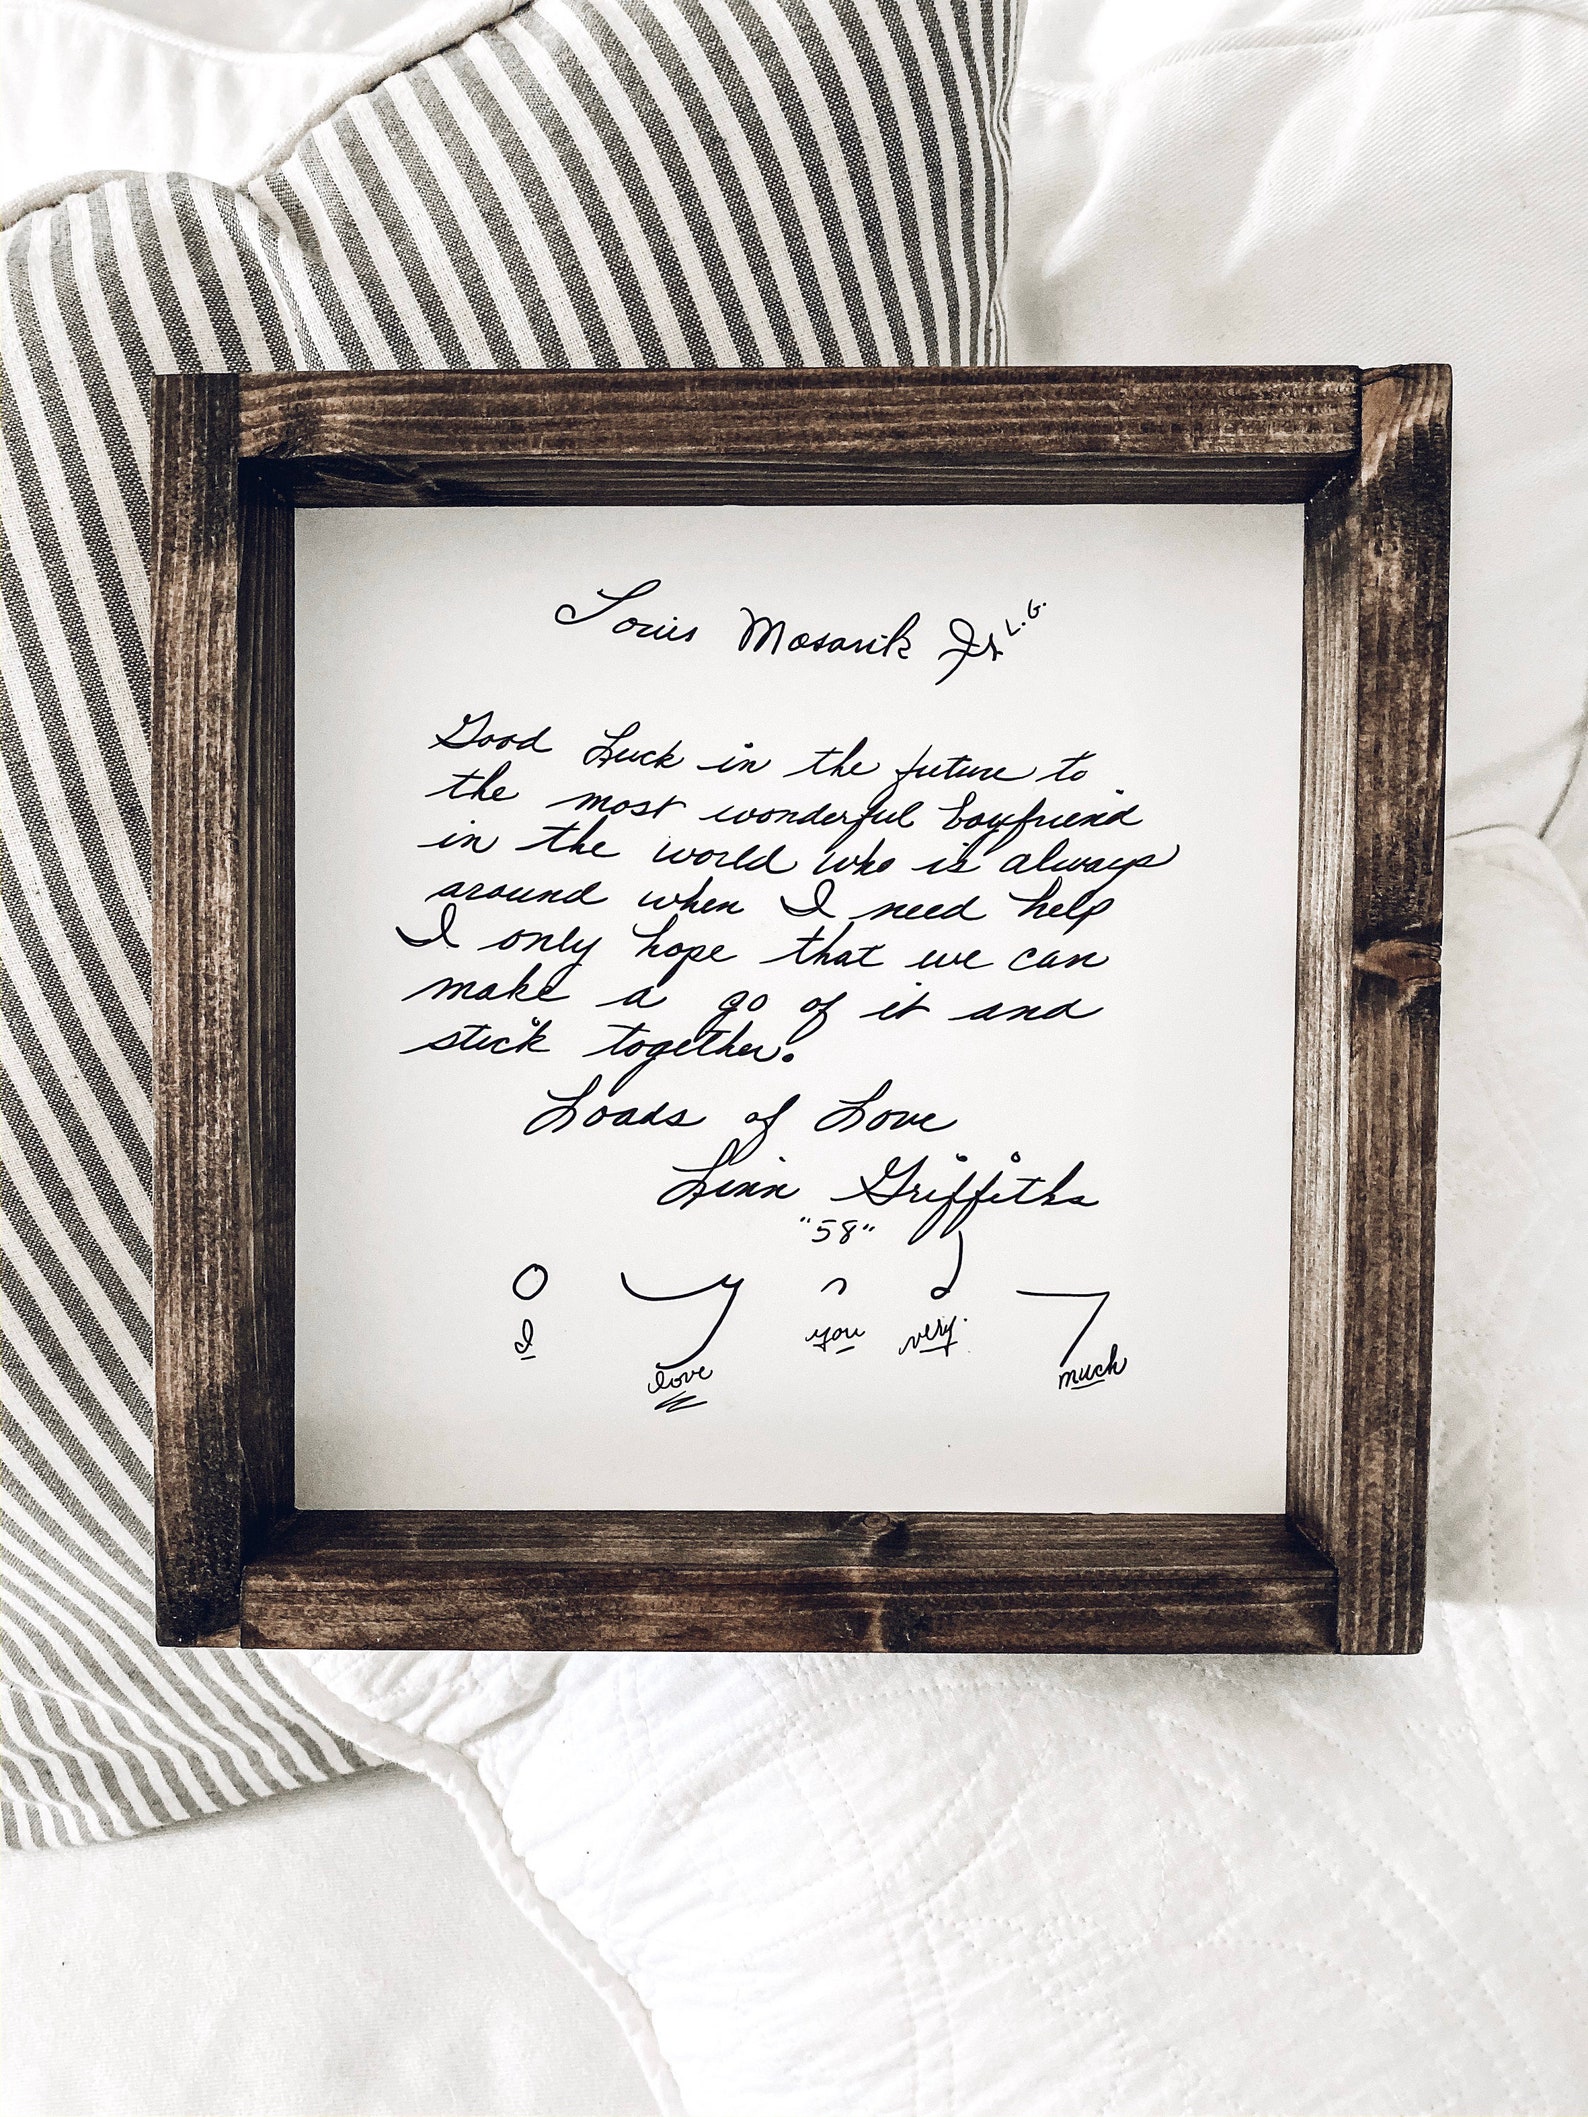 Louis Mosarik Jr L.G.
Good Luck in the future to
the most wonderful boyfriend
in the world who is always
around when I need help
I only hope that we can
make a go of it and
stick together.
Loads of Love
Linn Griffiths
"58"
I love you very much